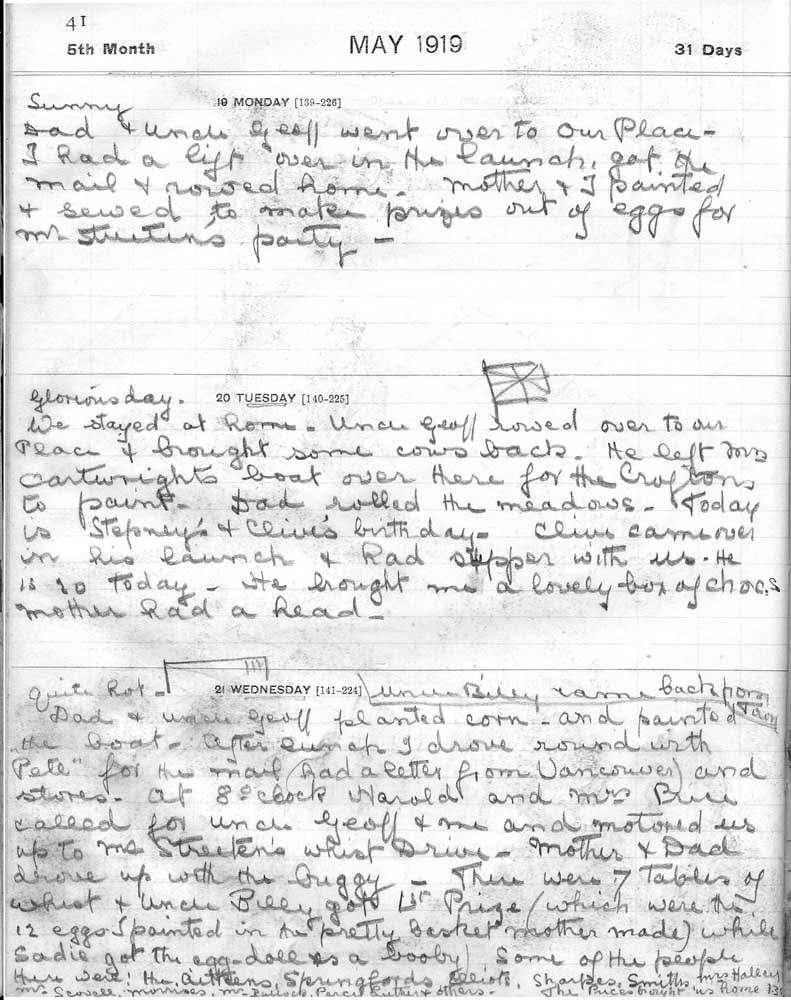 41
5th Month MAY 1919 31 Days
19 MONDAY [139-226]
Sunny
Dad & Uncle Geoff went over to Our Place -
I had a lift over in the launch, got the
mail & rowed home - Mother & I painted
& sewed to make prizes out of eggs for
Mrs Streeten's party -
Glorious day. 20 TUESDAY [140-225]
We stayed at home - Uncle Geoff rowed over to our
Place & brought some cows back. He left Mrs
Cartwrights boat over there for the Croftons
to paint - Dad rolled the meadows - Today
is Stepney's & Clive's birthday - Clive came over
in his launch & had supper with us. He
is 20 today - He brought me a lovely box of chocs
Mother had a head -
Quite hot - 21 WEDNESDAY [141-224] Uncle Billy came back from
Town
Dad & Uncle Geoff planted corn - and painted
the boat - After lunch I drove round with
"Pete" for the mail (had a letter from Vancouver) and
stores - At 8 o'clock Harold and Mrs Price
called for Uncle Geoff & me and motored us
up to Mrs Streeten's whist Drive - Mother & Dad
drove up with the buggy - There were 7 Tables of
whist & Uncle Billy got 1st Prize (which were the
12 eggs I painted in the pretty basket mother made) while
Sadie got the egg-doll as a booby) Some of the people
there were: the Aitkens, Springfords, Elliots, Sharpes, Smiths, Mrs Halley
Mrs Scovell, Morrises, Mr Bullock, Percy & others - The Prices brought us home